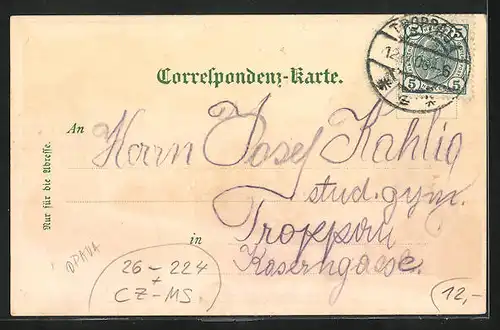 TROPPAU
5 5
Correspondenz-Karte.
An
Herrn Josef Kahlig
stud. gym.
in Troppau
Kaserngasse.
Nur für die Adresse.
OPAVA
26-224
+
CZ-MS.
12,-